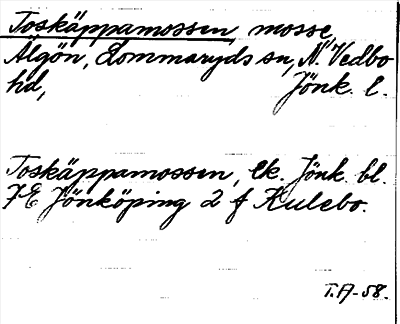 Toskäppamossen, mosse,
Älgön, Lommaryds sn, N. Vedbo
hd, Jönk. l.
Toskäppamossen, Ek. Jönk. bl.
7E Jönköping 2 f Kulebo.
T.A-58.